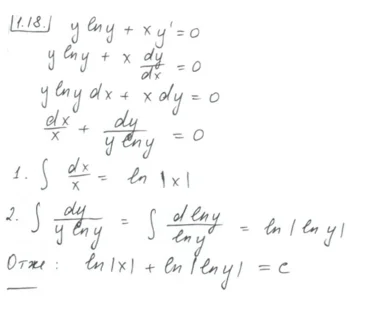 1.18. y ln y + x y' = 0
y ln y + x dy/dx = 0
y ln y dx + x dy = 0
dx/x + dy/(y ln y) = 0
1. ∫ dx/x = ln |x|
2. ∫ dy/(y ln y) = ∫ d ln y/ln y = ln |ln y|
Отже: ln|x| + ln|ln y| = c